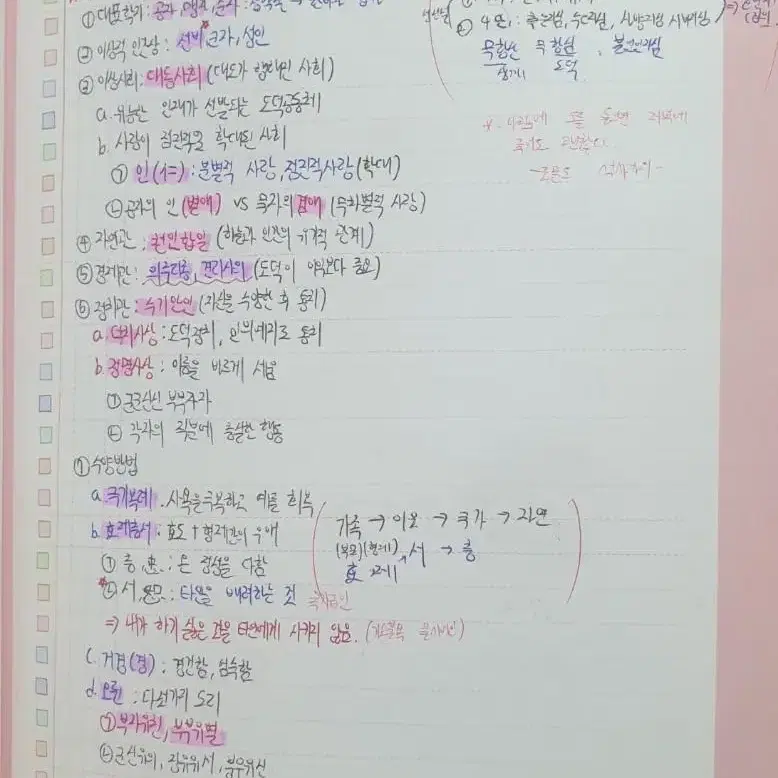 ① 대표학자: 공자, 맹자, 순자
② 4단: 측은지심, 수오지심, 사양지심, 시비지심
② 이상적 인간상: 선비, 군자, 성인
측은심 수오심
③ 이상사회: 대동사회 (대도가 행해진 사회)
도덕
a. 유능한 인재가 선발되는 도덕공동체
b. 사람이 점진적을 확대된 사회
㉠ 인(仁): 분별적 사랑, 점진적사랑(확대)
㉡ 공자의 인(별애) vs 묵자의 겸애 (무차별적 사랑)
④ 자연관: 천인합일 (하늘과 인간의 유기적 관계)
⑤ 경제관: 의 (도덕이 이익보다 중요)
⑥ 정치관: 수기안인 (자신을 수양한 후 통치)
a. 덕치사상: 도덕정치, 인의예지로 통치
b. 정명사상: 이름을 바르게 세움
㉠ 군군신신 부부자자
㉡ 각자의 직분에 충실한 행동
⑦ 수양방법
a. 극기복례. 사욕을 극복하고 예를 회복
b. 효제충서: 효도 + 형제간의 우애
가족 → 이웃 → 국가 → 자연
(부모)(형제) 서 → 충
효 제
㉠ 충, : 온 정성을 다함
㉡ 서, : 타인을 배려하는 것
⇒ 내가 하기 싫은 것을 타인에게 시키지 않음.
c. 거경(경): 경건함, 엄숙함
d. 오륜: 다섯가지 도리
㉠ 부자유친, 부부유별
㉡ 군신유의, 장유유서, 붕우유신